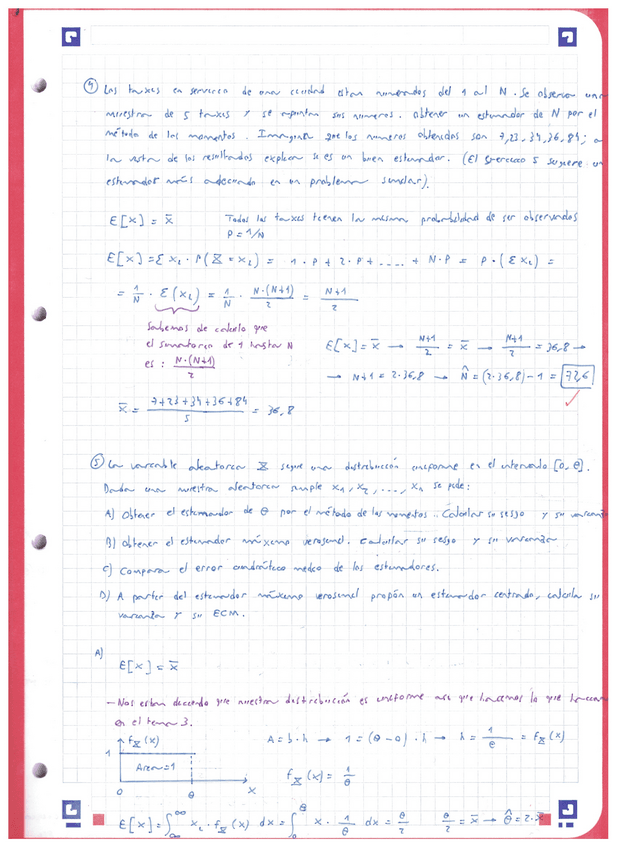 ④ Los taxis en servicio de una ciudad estan numerados del 1 al N. Se observa una
muestra de 5 taxis y se apuntan sus numeros. obtener un estimador de N por el
método de los momentos. Imagina que los numeros obtenidos son 7,23,34,36,84; a
la vista de los resultados explica si es un buen estimador. (El ejercicio 5 sugiere un
estimador más adecuado en un problema similar).
E[x] = x̄ Todos los taxis tienen la misma probabilidad de ser observados
P = 1/N
E[x] = Σ xᵢ · P(X = xᵢ) = 1·P + 2·P + .... + N·P = P·(Σxᵢ) =
= 1/N · Σ(xᵢ) = 1/N · N·(N+1)/2 = N+1/2
Sabemos de calculo que
el sumatorio de 1 hasta N
es: N·(N+1)/2
E[x] = x̄ → N+1/2 = x̄ → N+1/2 = 36,8 →
→ N+1 = 2·36,8 → N̂ = (2·36,8) - 1 = 72,6
x̄ = 7+23+34+36+84/5 = 36,8
⑤ La variable aleatoria X sigue una distribución uniforme en el intervalo [0, θ].
Dada una muestra aleatoria simple x₁, x₂, ..., xₙ se pide:
A) Obtener el estimador de θ por el método de los momentos. Calcular su sesgo y su varianza
B) Obtener el estimador máximo verosimil. Calcular su sesgo y su varianza
C) Compara el error cuadrático medio de los estimadores.
D) A partir del estimador máximo verosimil propón un estimador centrado, calcula su
varianza y su ECM.
A)
E[x] = x̄
- Nos estan diciendo que nuestra distribución es uniforme asi que hacemos lo que haciamos
en el tema 3.
f_X(x) A = b·h → 1 = (θ-0)·h → h = 1/θ = f_X(x)
1
Area=1
f_X(x) = 1/θ
0 θ x
E[x] = ∫_∞^∞ xᵢ · f_X(x) dx = ∫₀^θ x · 1/θ dx = θ/2 θ/2 = x̄ → θ̂ = 2·x̄